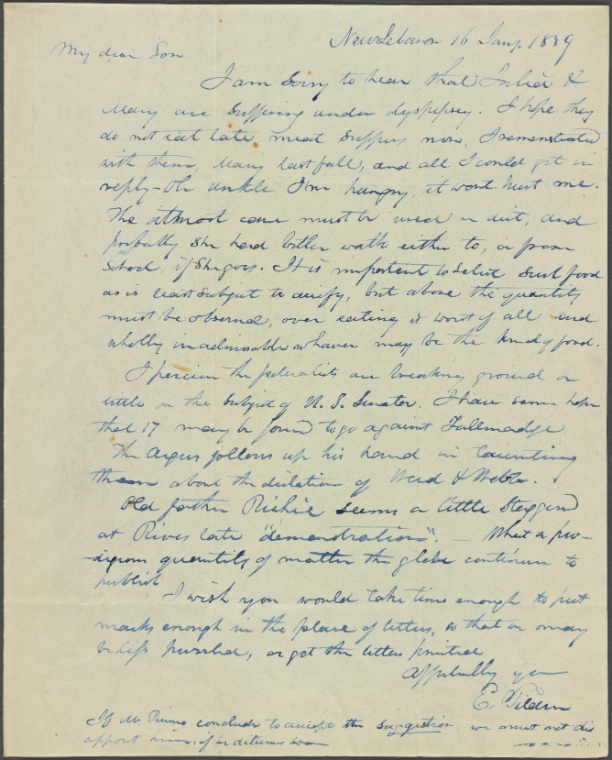 New Lebanon 16 Jany. 1839
My dear Son
I am sorry to hear that &
Mary are suffering under dyspepsy. I hope they
do not eat late meat suppers now, I remonstrated
with them, Mary last fall, and all I could get in
reply - Oh unkle I'm hungry, it wont hurt me.
The utmost care must be used in diet, and
probably she had better walk either to, or from
School, if She goes. It is important to Select such food
as is least subject to acidify, but above the quantity
must be observed, over eating is worst of all and
wholly inadmissable whatever may be the kind of food.
I perceive the federalists are breaking ground a
little on the subject of U. S. Senator. I have some hope
that 17 may be found to go against Tallmadge
The Argus follows up his hand in taunting
them about the dictation of Weed & Webb.
Old father Richie seems a little staggered
at Rives late "demonstration". - What a pro-
digious quantity of matter the globe continues to
publish
I wish you would take time enough to put
marks enough in the place of letters, so that we may
be less puzzled, or get the letters printed
Affectionately yrs
E. Tilden
If Mr conclude to accept the suggestion we must not dis
appoint him, if he returns soon